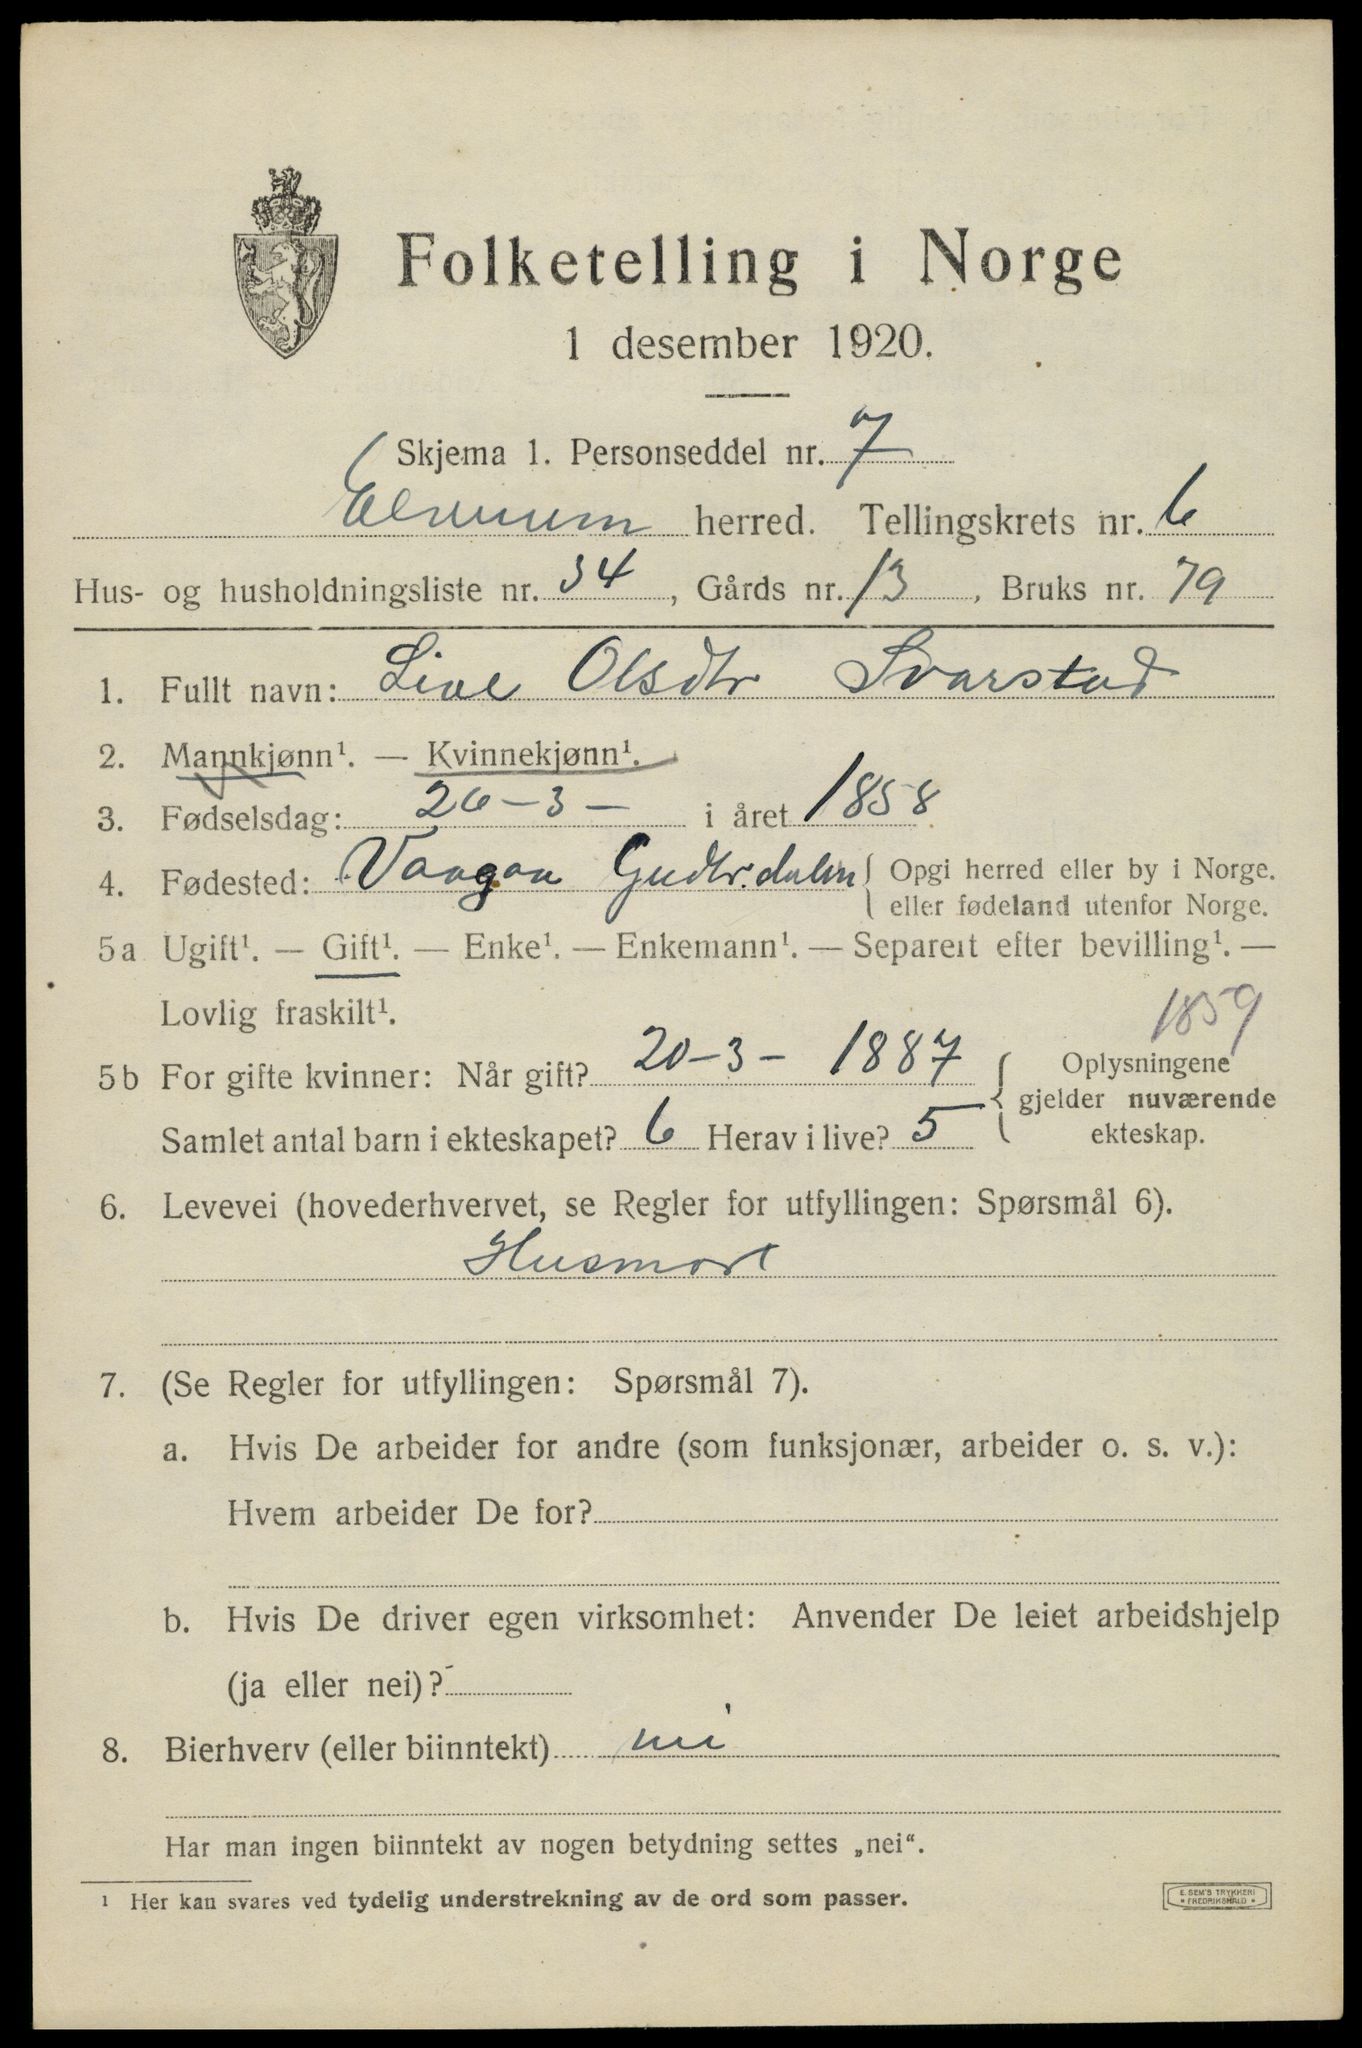 Folketelling i Norge
1 desember 1920.
Skjema 1. Personseddel nr. 7
Elverum herred. Tellingskrets nr. 6
Hus- og husholdningsliste nr. 34, Gårds nr. 13, Bruks nr. 79
1. Fullt navn: Live Olsdtr Svarstad
2. Mannkjønn¹. — Kvinnekjønn¹.
3. Fødselsdag: 26-3- i året 1858
4. Fødested: Vaagaa Gudbr.dalen { Opgi herred eller by i Norge.
eller fødeland utenfor Norge.
5a Ugift¹. — Gift¹. — Enke¹. — Enkemann¹. — Separert efter bevilling¹. —
Lovlig fraskilt¹.
1859
5b For gifte kvinner: Når gift? 20-3- 1887 { Oplysningene
gjelder nuværende
Samlet antal barn i ekteskapet? 6 Herav i live? 5 ekteskap.
6. Levevei (hovederhvervet, se Regler for utfyllingen: Spørsmål 6).
Husmor
7. (Se Regler for utfyllingen: Spørsmål 7).
a. Hvis De arbeider for andre (som funksjonær, arbeider o. s. v.):
Hvem arbeider De for?
b. Hvis De driver egen virksomhet: Anvender De leiet arbeidshjelp
(ja eller nei)?
8. Bierhverv (eller biinntekt) nei
Har man ingen biinntekt av nogen betydning settes „nei“.
¹ Her kan svares ved tydelig understrekning av de ord som passer.
E. SEM'S TRYKKERI
• FREDRIKSHALD •